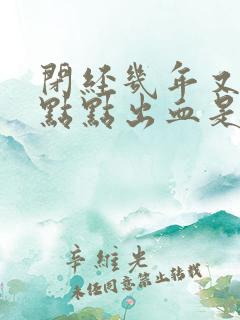 閉經幾年又
點點出血是
辛維光
未經同意禁止轉載